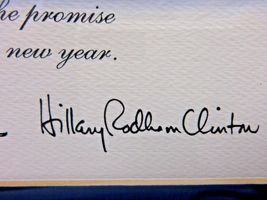 he promise
new year.
Hillary Rodham Clinton